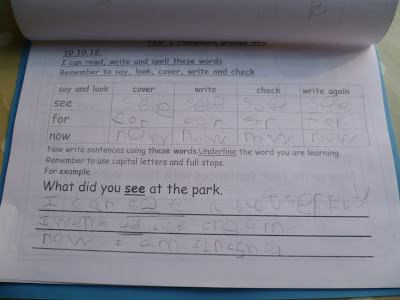 10.10.12.
I can read, write and spell these words
Remember to say, look, cover, write and check
say and look cover write check write again
see see see see see
for for for for for
now now now now now
Now write sentences using these words.Underline the word you are learning.
Remember to use capital letters and full stops.
For example.
What did you see at the park.
I can see a butterfly
I went
now I am